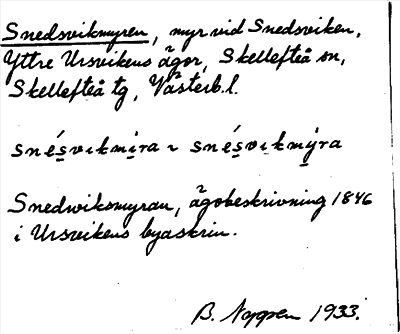 Snedsvikmyren, myr vid Snedsviken,
Yttre Ursvikens ägor, Skellefteå sn,
Skellefteå tg, Västerb.l.
snés̱vi̱kmi̱ra ~ snés̱vi̱kmý̱ra
Snedwiksmyran, ägobeskrivning 1846
i Ursvikens byaskrin.
B. 1933.